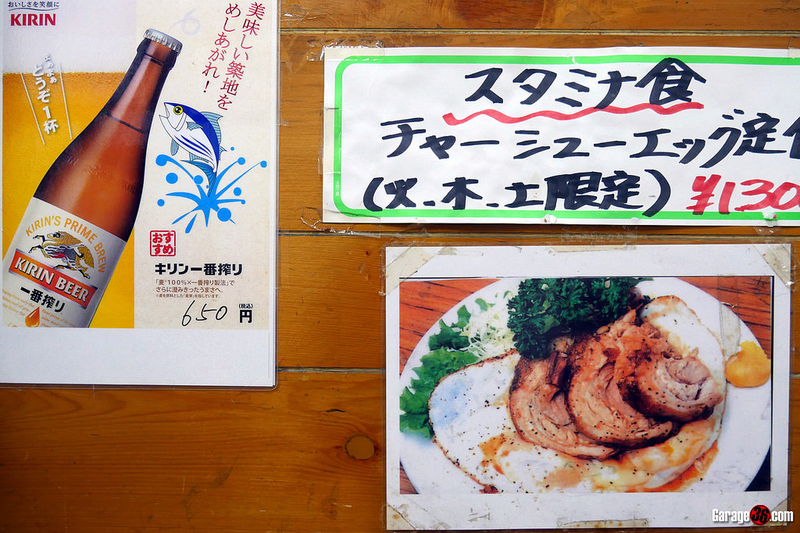 おいしさを笑顔に
KIRIN
どうぞ1杯
美味しい築地を
めしあがれ！
KIRIN'S PRIME BREW
KIRIN BEER
一番搾り
おすすめ
キリン一番搾り
「麦100%×一番搾り製法」で
さらに澄みきったうまさへ。
650 (税込) 円
スタミナ食
チャーシューエッグ定
(火、木、土限定) ¥130
Garage36.com